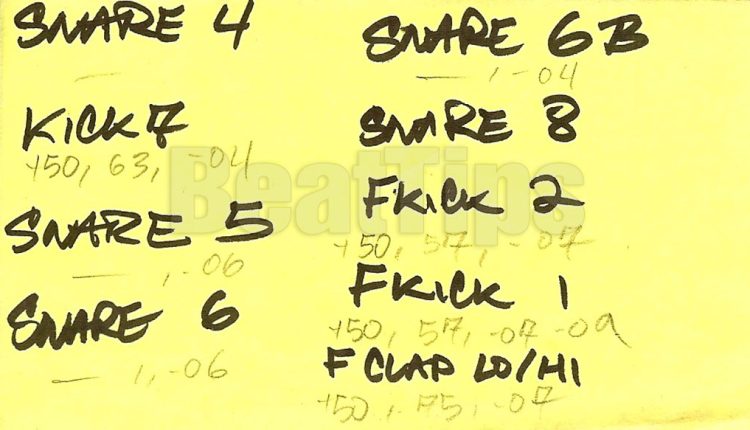 SNARE 4
—
KICK 7
+50, 63, -04
SNARE 5
— , -06
SNARE 6
— 1, -06
SNARE 6B
— 1, -04
SNARE 8
FKICK 2
+50, 57, -07
FKICK 1
+50, 57, -07 -09
F CLAP LO/HI
+50, 75, -07
BeatTips